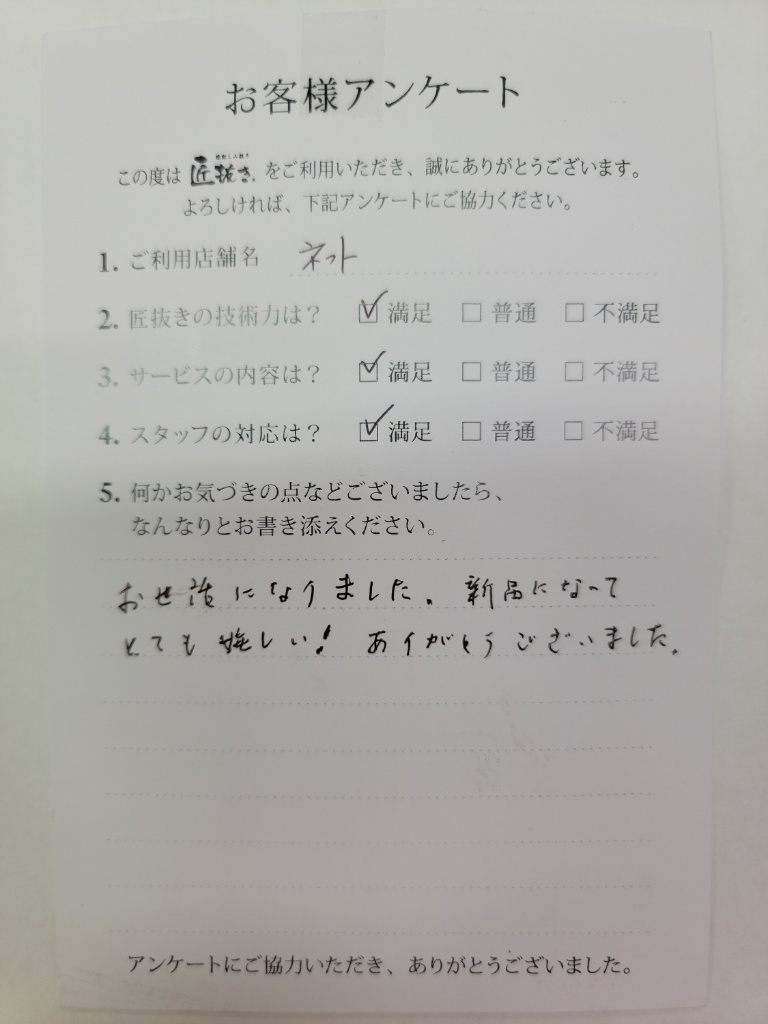 お客様アンケート
この度は 匠抜き をご利用いただき、誠にありがとうございます。
よろしければ、下記アンケートにご協力ください。
1. ご利用店舗名 ネット
2. 匠抜きの技術力は? ☑満足 □普通 □不満足
3. サービスの内容は? ☑満足 □普通 □不満足
4. スタッフの対応は? ☑満足 □普通 □不満足
5. 何かお気づきの点などございましたら、
なんなりとお書き添えください。
お世話になりました。新品になって
とても嬉しい! ありがとうございました。
アンケートにご協力いただき、ありがとうございました。